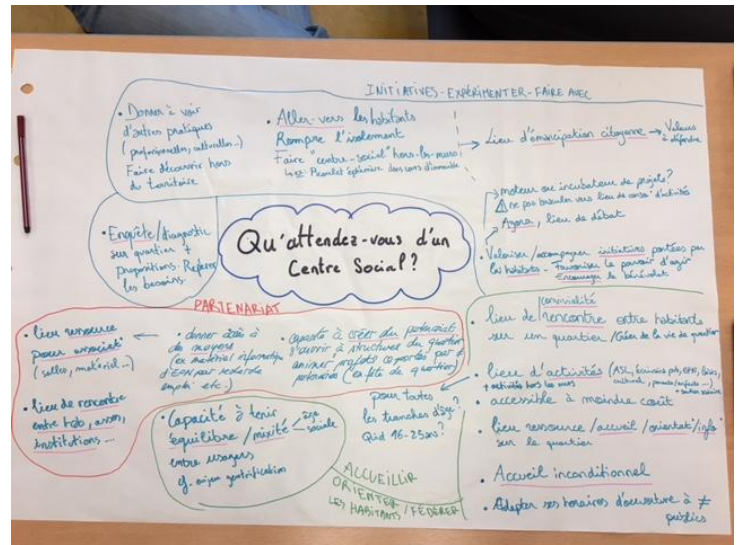 INITIATIVES - EXPÉRIMENTER - FAIRE AVEC
• Donner à voir
d'autres pratiques
(professionnelles, culturelles...)
Faire découvrir hors
du territoire
• Aller-vers les habitants
Rompre l'isolement
Faire "centre-social" hors-les-murs
↳ ex: éphémère dans cours d'immeuble
→ Lieu d'émancipation citoyenne → Valeurs
à défendre
→ moteur ou incubateur de projets?
⚠ ne pas basculer vers lieu de conso° d'activités
→ Agora, lieu de débat
• Valoriser/accompagner initiatives portées par
les habitants - Favoriser le pouvoir d'agir
Encourager le bénévolat
• Enquête/diagnostic
sur quartier +
propositions.
les besoins.
Qu'attendez-vous d'un
Centre Social?
PARTENARIAT
• lieu ressource
pour associat°
(salles, matériel...)
• lieu de rencontre
entre hab, assos,
institutions...
• donner accès à
des moyens
(ex matériel informatique
d'EPN pour recherche
emploi etc.)
• capacité à créer du partenariat
s'ouvrir à structures du quartier
animer projets co-portés par #
partenaires (ex fête de quartier)
• Capacité à tenir
équilibre/mixité < âge
sociale
entre usagers
cf. enjeu gentrification
pour toutes
les tranches d'âge.
Quid 16-25ans?
ACCUEILLIR
ORIENTER
LES HABITANTS / FÉDÉRER
convivialité
• lieu de rencontre entre habitants
sur un quartier / Créer de la vie de quartier
• lieu d'activités (ASL, culturels, parents/enfants...)
+ activités hors les murs
• accessible à moindre coût
• lieu ressource/accueil/orientat°/info°
sur le quartier
• Accueil inconditionnel
• Adapter ses horaires d'ouverture à ≠
publics